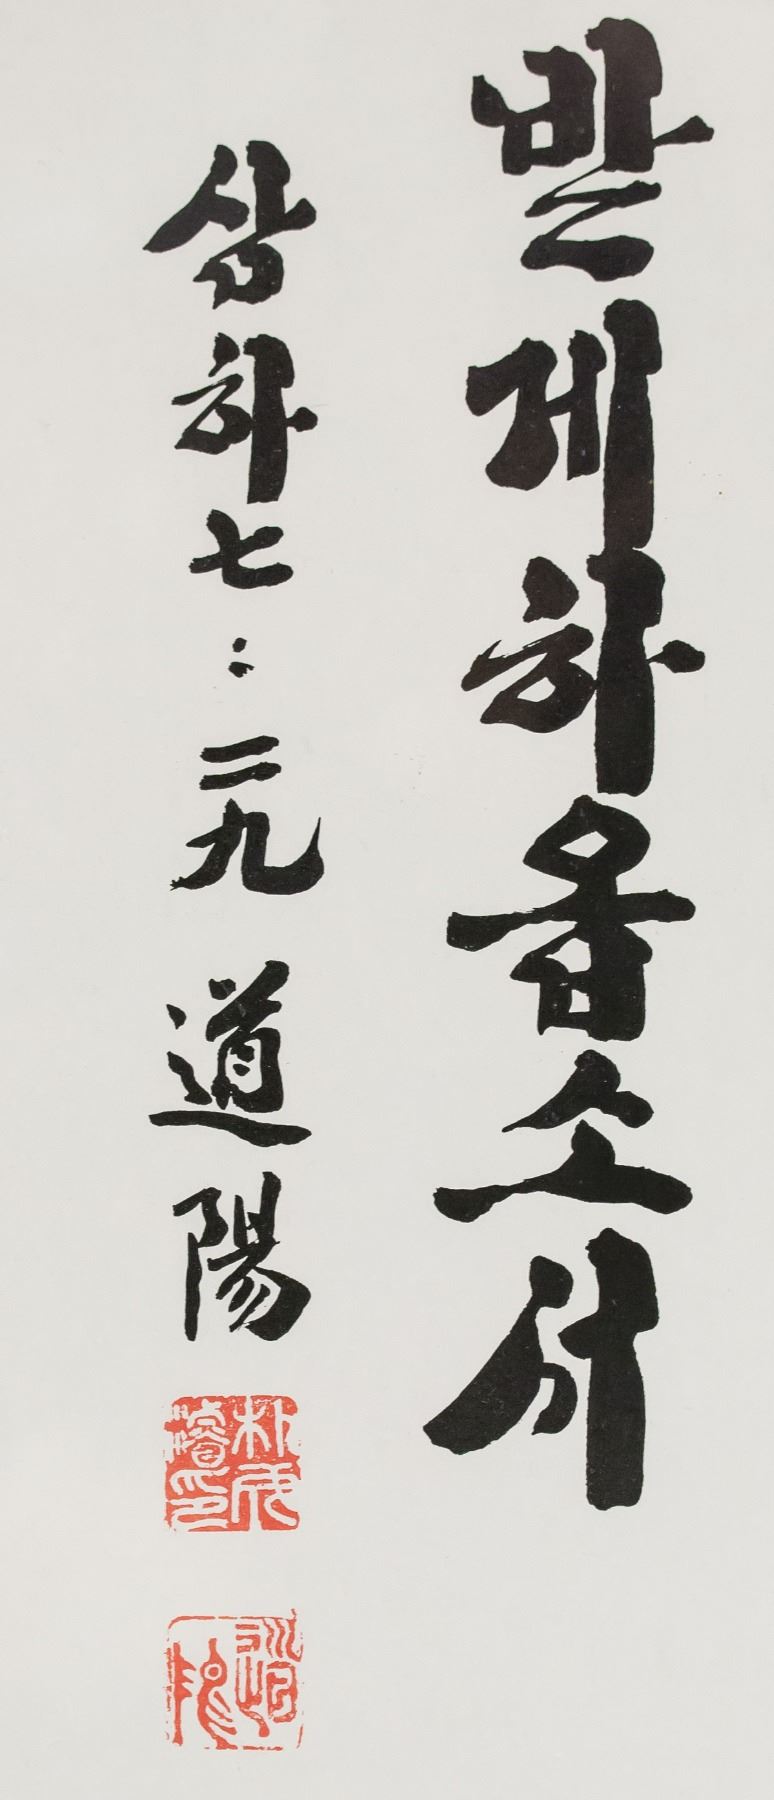 받게하옵소서
삼하七:二九 道陽